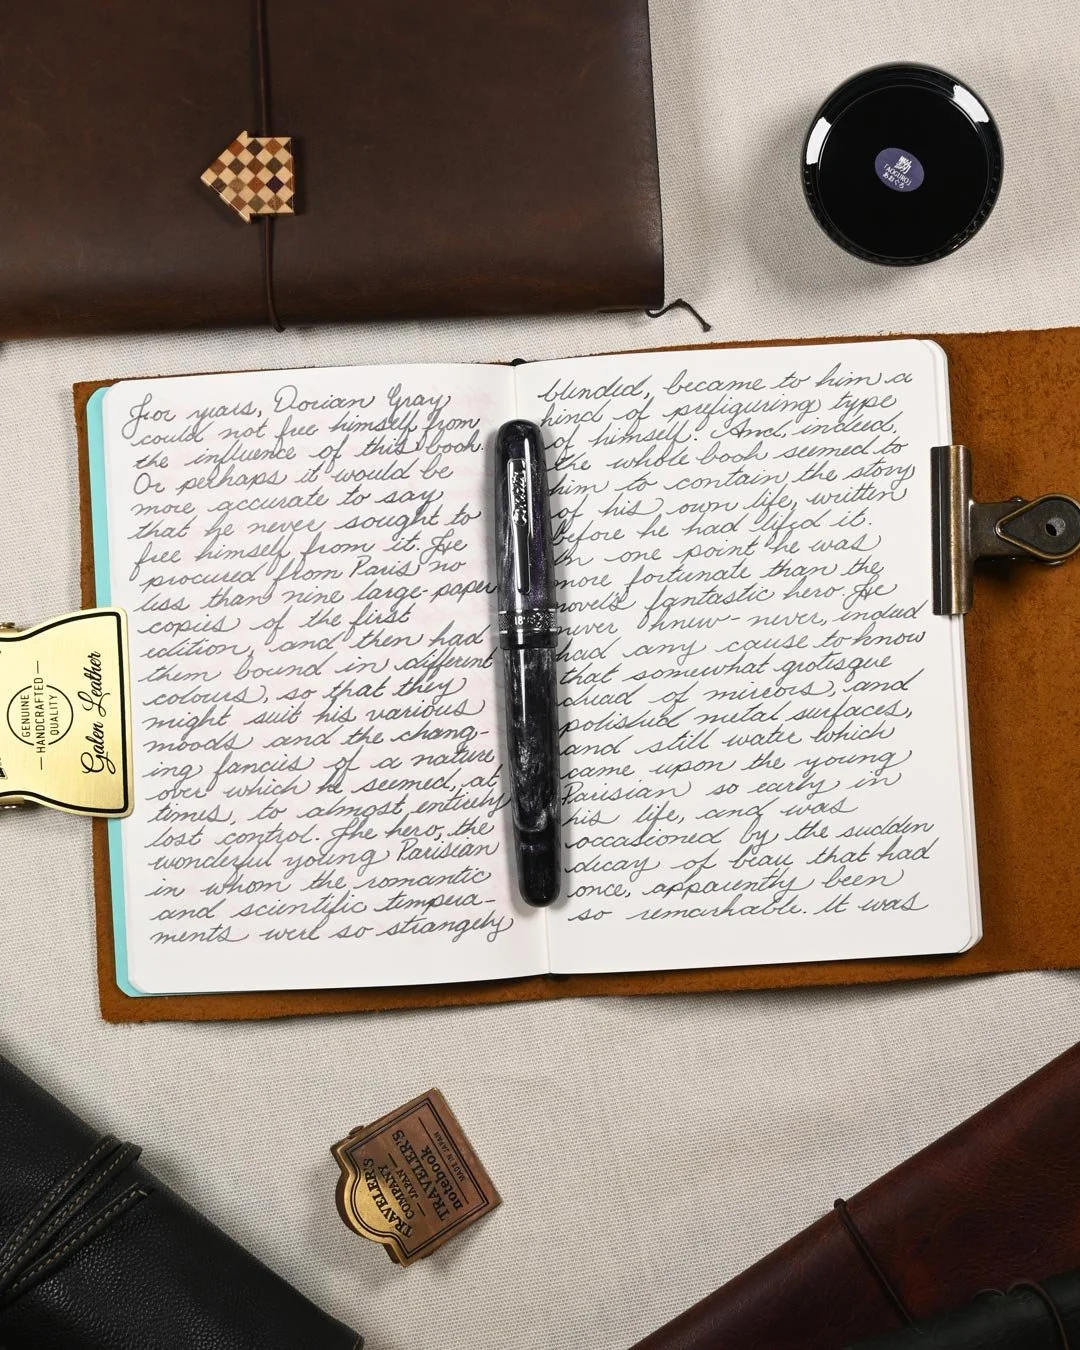 TAOGUROI
あおぐろ
For years, Dorian Gray
could not free himself from
the influence of this book.
Or perhaps it would be
more accurate to say
that he never sought to
free himself from it. He
procured from Paris no
less than nine large-paper
copies of the first
edition, and then had
them bound in different
colours, so that they
might suit his various
moods and the chang-
ing fancies of a nature
over which he seemed, at
times, to almost entirely
lost control. The hero, the
wonderful young Parisian
in whom the romantic
and scientific tempera-
ments were so strangely
blended, became to him a
kind of prefiguring type
of himself. And, indeed,
the whole book seemed to
him to contain the story
of his own life, written
before he had lived it.
In one point he was
more fortunate than the
novel's fantastic hero. He
never knew - never, indeed
had any cause to know
that somewhat grotesque
dread of mirrors, and
polished metal surfaces,
and still water which
came upon the young
Parisian so early in
his life, and was
occasioned by the sudden
decay of beau that had
once, apparently been
so remarkable. It was
GENUINE
HANDCRAFTED
QUALITY
Galen Leather
TRAVELER'S
COMPANY
JAPAN
TRAVELER'S
notebook
MADE IN JAPAN